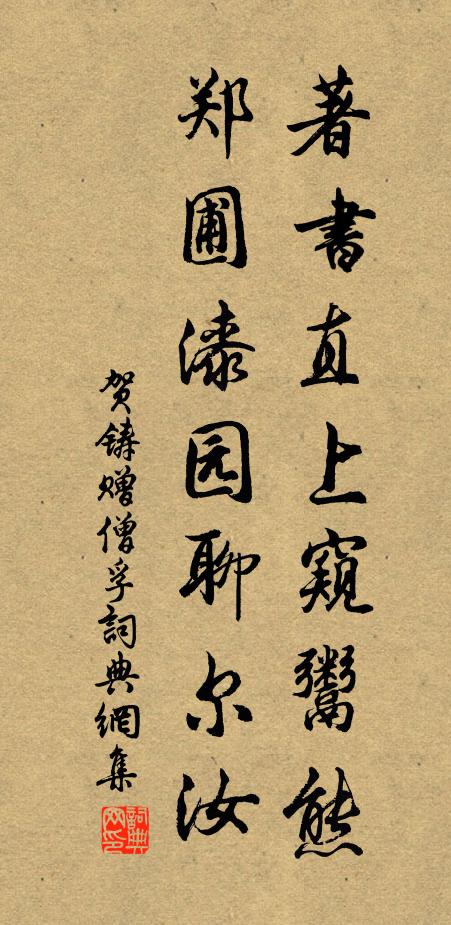 著書直上窺鬻熊
郑圃漆园聊尔汝
贺铸赠僧孚詞典網集
詞典网印